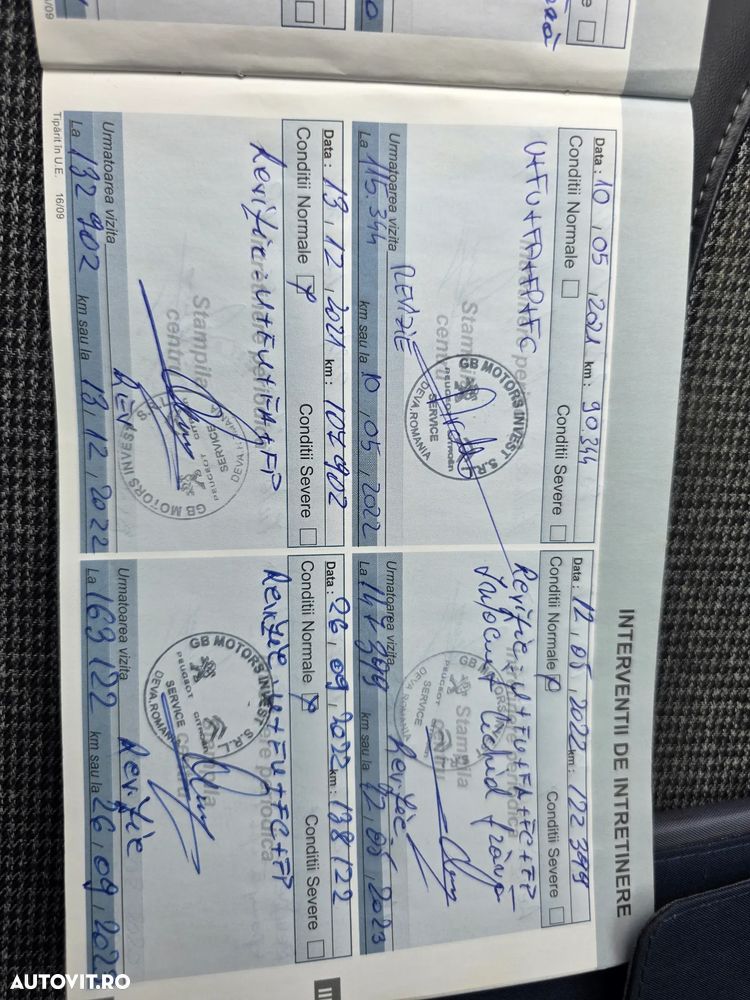 INTERVENTII DE INTRETINERE
Data : 10 , 05 , 2021 km : 90344
Conditii Normale Conditii Severe
U+FU+FA+FP+FC
Stampila
GB MOTORS INVEST S.R.L.
PEUGEOT CITROËN
SERVICE
DEVA, ROMANIA
REVIZIE
Urmatoarea vizita
La 115.344 km sau la 10 , 05 , 2022
Data : 12 , 05 , 2022 km : 122 399
Conditii Normale Conditii Severe
Revizie : U+FU+FA+FC+FP
Inlocuit lichid frâna
Stampila
PEUGEOT
SERVICE
DEVA, ROMANIA
Urmatoarea vizita Revizie
La 147 399 km sau la 12 , 05 , 2023
Data : 13 , 12 , 2021 km : 107902
Conditii Normale x Conditii Severe
Revizie : U+FU+FA+FP
Stampila
GB MOTORS INVEST
PEUGEOT
SERVICE
Urmatoarea vizita REV
La 132 902 km sau la 13 , 12 , 2022
Data : 26 , 09 , 2022 km : 138122
Conditii Normale x Conditii Severe
Revizie : U+FU+FC+FP
GB MOTORS INVEST S.R.L.
PEUGEOT CITROËN
SERVICE
DEVA, ROMANIA
Urmatoarea vizita Revizie
La 163122 km sau la 26 , 09 ,
Tipărit în U.E. 16/09
III
AUTOVIT.RO